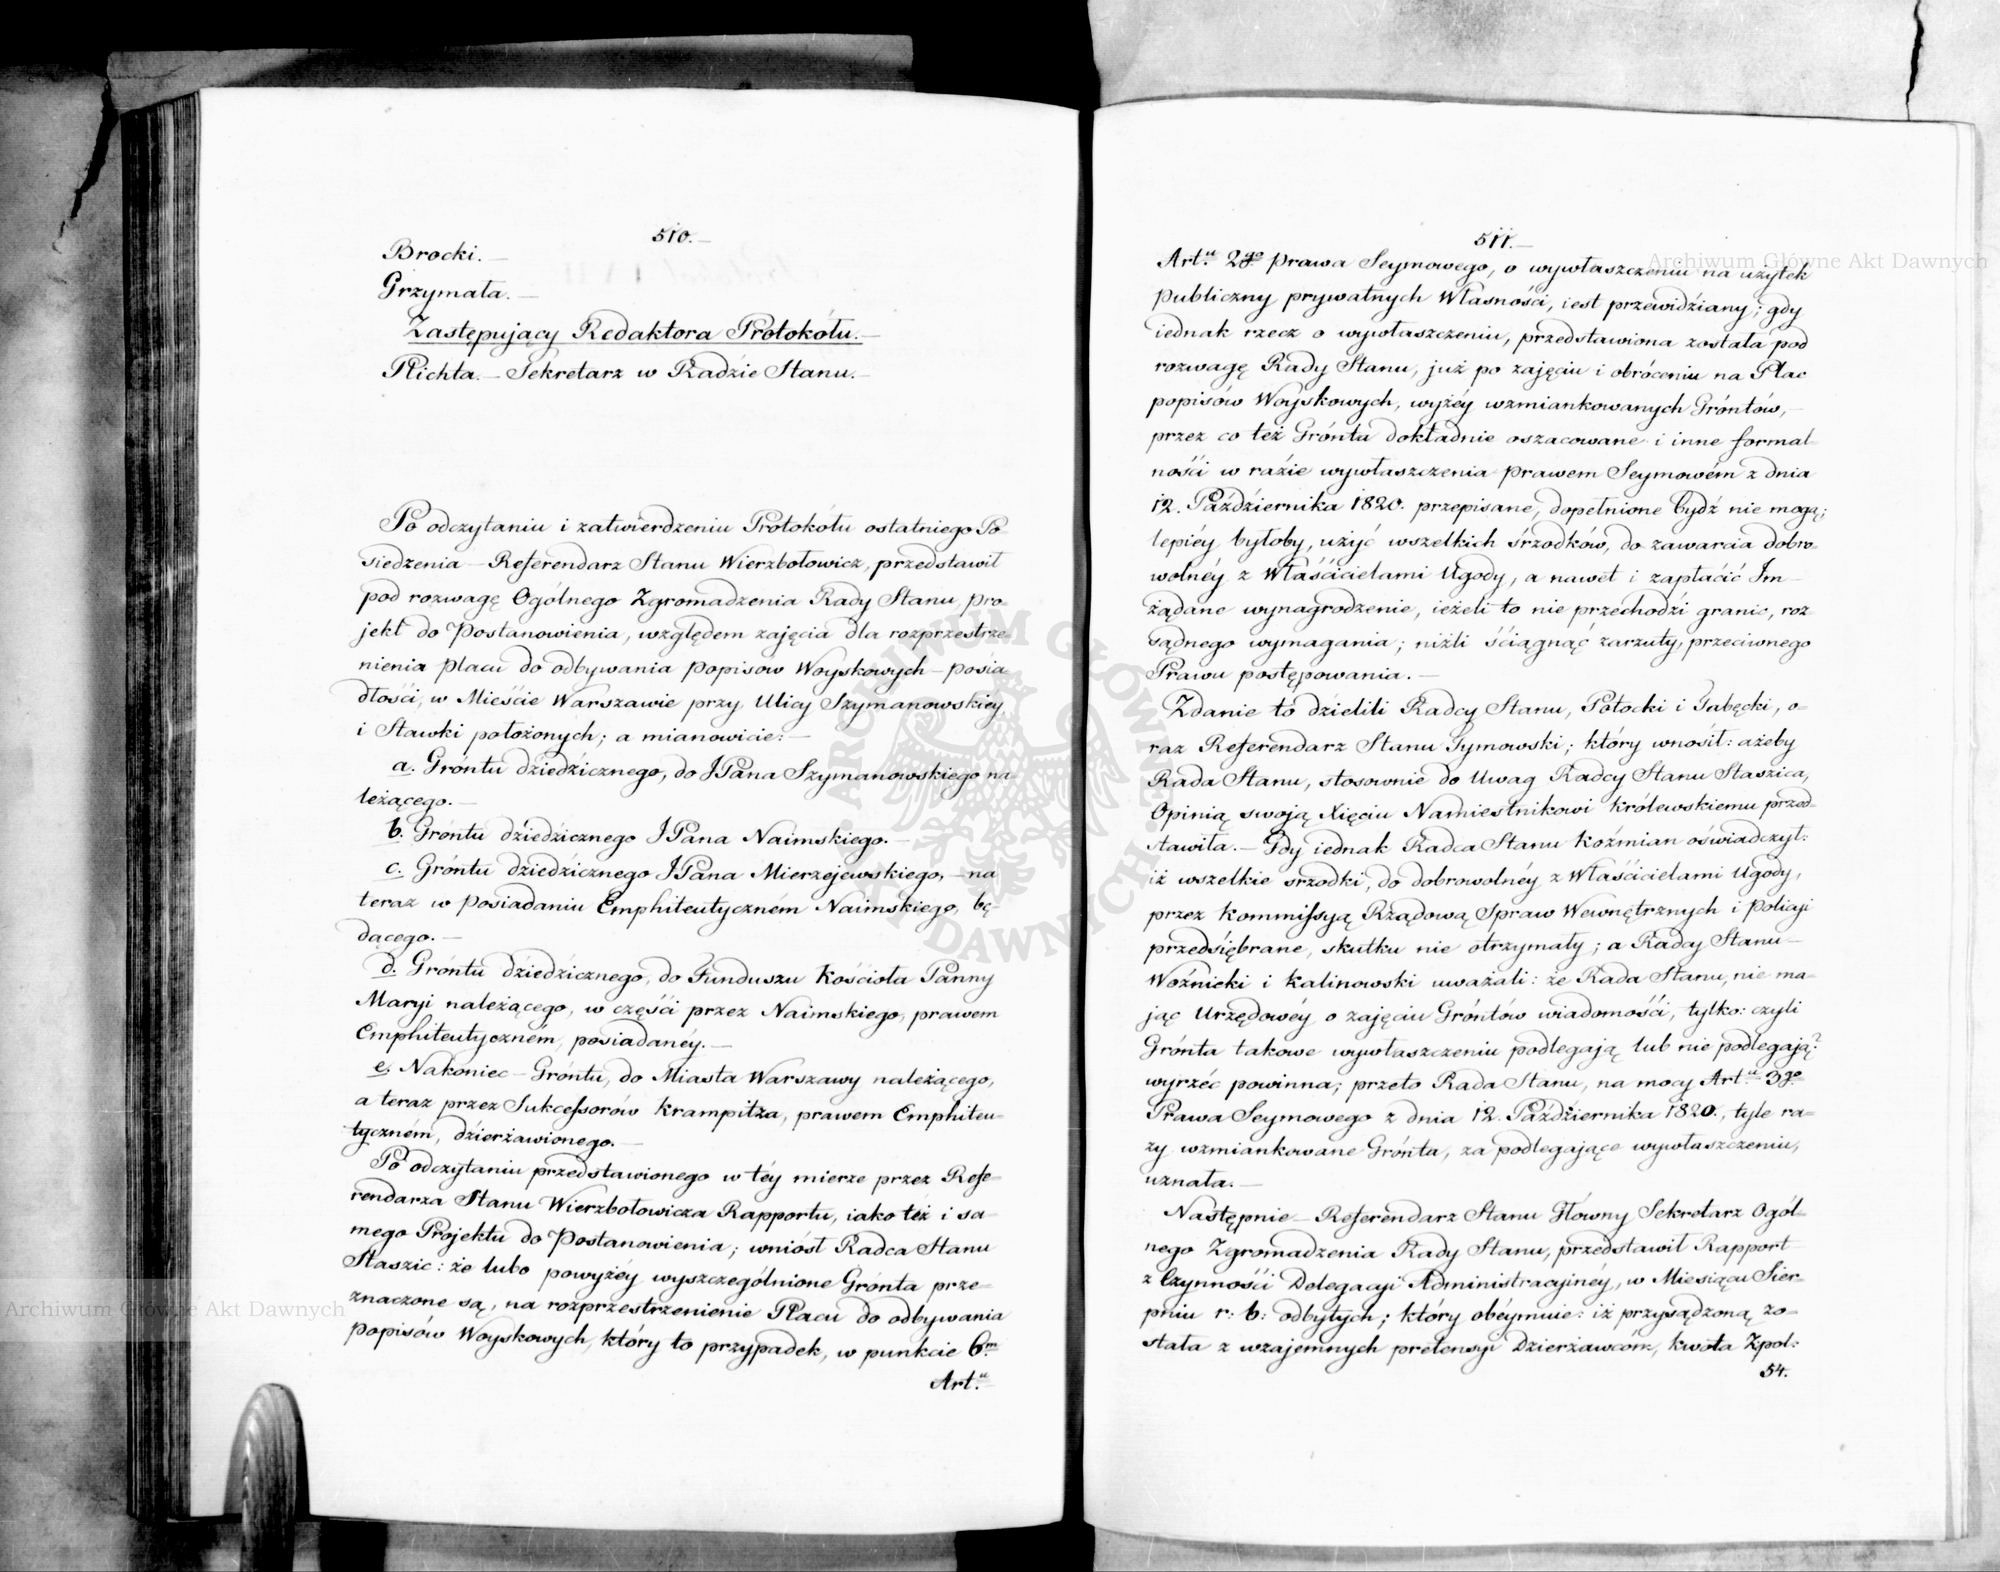 510.
Brocki.
Grzymała.
Zastępujący Redaktora Protokółu.
Plichta. – Sekretarz w Radzie Stanu.
Po odczytaniu i zatwierdzeniu Protokółu ostatniego Po-
siedzenia – Referendarz Stanu Wierzbołowicz, przedstawił
pod rozwagę Ogólnego Zgromadzenia Rady Stanu, pro-
jekt do Postanowienia, względem zajęcia dla rozprzestrze-
nienia placu do odbywania popisow Woyskowych – posia
dłości, w Mieście Warszawie przy Ulicy Szymanowskiéy
i Stawki położonych; a mianowicie: –
a. Gróntu dziedzicznego, do JPana Szymanowskiego na
leżącego. –
b. Gróntu dziedzicznego JPana Naimskiego. –
c. Gróntu dziedzicznego JPana Mierzejewskiego, – na
teraz w posiadaniu Emphiteutyczném Naimskiego, bę-
dącego. –
d. Gróntu dziedzicznego, do Funduszu Kościoła Panny
Maryi należącego, w części przez Naimskiego, prawem
Emphiteutyczném, posiadanéy. –
e. Nakoniec – Gróntu, do Miasta Warszawy należącego,
a teraz przez Sukcessorów Krampitza, prawem Emphiteu-
tyczném, dzierżawionego. –
Po odczytaniu przedstawionego w téy mierze przez Refe-
rendarza Stanu Wierzbołowicza Rapportu, iako téż i sa-
mego Projektu do Postanowienia; wniósł Radca Stanu
Staszic: że lubo powyżéy wyszczególnione Grónta prze-
znaczone są, na rozprzestrzenienie Placu do odbywania
popisów Woyskowych, który to przypadek, w punkcie 6m
Art.u
511.
Art.u 2go Prawa Seymowego, o wywłaszczeniu na użytek
publiczny prywatnych Własności, iest przewidziany; gdy
iednak rzecz o wywłaszczeniu, przedstawiona została pod
rozwagę Rady Stanu, już po zajęciu i obróceniu na Plac
popisów Woyskowych, wyżéy wzmiankowanych Gróntów, –
przez co też Grónta dokładnie oszacowane i inne formal-
ności w razie wywłaszczenia prawem Seymowém z dnia
12. Października 1820. przepisane, dopełnione bydź nie mogą;
lepiéy byłoby, użyć wszelkich śrzodków, do zawarcia dobro-
wolnéy z Właścicielami Ugody, a nawet i zapłacić Im –
żądane wynagrodzenie, ieżeli to nie przechodzi granic, roz-
sądnego wymagania; niżli ściągnąć zarzuty, przeciwnego
Prawu postępowania. –
Zdanie to dzielili Radcy Stanu, Potocki i Gubęcki, o-
raz Referendarz Stanu Tymowski; który wnosił: ażeby
Rada Stanu, stosownie do Uwag Radcy Stanu Staszica,
Opinią swoją Xięciu Namiestnikowi Królewskiemu przed-
stawiła. – Gdy iednak Radca Stanu Koźmian oświadczył:
iż wszelkie srzodki, do dobrowolnéy z Właścicielami Ugody,
przez Kommissyą Rządową Spraw Wewnętrznych i Policyi
przedsiębrane, skutku nie otrzymały; a Radcy Stanu –
Woźnicki i Kalinowski uważali: że Rada Stanu, nie ma-
jąc Urzędowéy o zajęciu Gróntów wiadomości, tylko: czyli
Grónta takowe wywłaszczeniu podlegają lub nie podlegają?
wyrzéc powinna; przeto Rada Stanu, na mocy Art.u 3go
Prawa Seymowego z dnia 12. Października 1820., tyle ra-
zy wzmiankowane Grónta, za podlegające wywłaszczeniu,
uznała. –
Następnie – Referendarz Stanu Główny Sekretarz Ogól-
nego Zgromadzenia Rady Stanu, przedstawił Rapport
z Czynności Delegacyi Administracyinéy, w Miesiącu Sier-
pniu r: b: odbytych; który obéymuie: iż przysądzoną zo-
stała z wzajemnych pretensyi Dzierżawcóm, kwota Zpol:
54.
Archiwum Główne Akt Dawnych
Archiwum Główne Akt Dawnych
ARCHIWUM GŁÓWNE AKT DAWNYCH